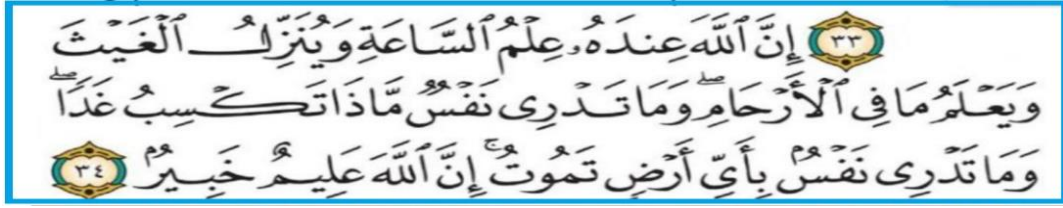 ٣٣ إِنَّ ٱللَّهَ عِندَهُۥ عِلْمُ ٱلسَّاعَةِ وَيُنَزِّلُ ٱلْغَيْثَ
وَيَعْلَمُ مَا فِى ٱلْأَرْحَامِۖ وَمَا تَدْرِى نَفْسٌ مَّاذَا تَكْسِبُ غَدًاۖ
وَمَا تَدْرِى نَفْسٌۢ بِأَىِّ أَرْضٍ تَمُوتُۚ إِنَّ ٱللَّهَ عَلِيمٌ خَبِيرٌۢ ٣٤